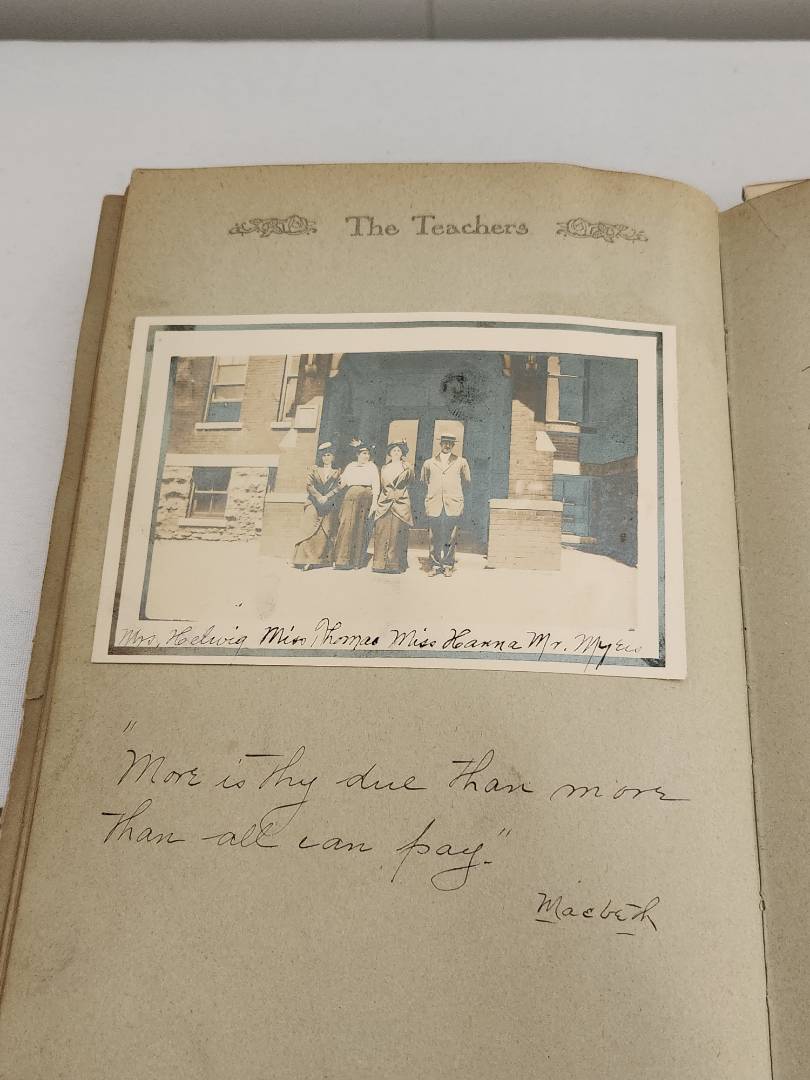 The Teachers
Mrs. Helwig Miss Thomas Miss Hanna Mr. Myers
"More is thy due than more
than all can pay."
Macbeth